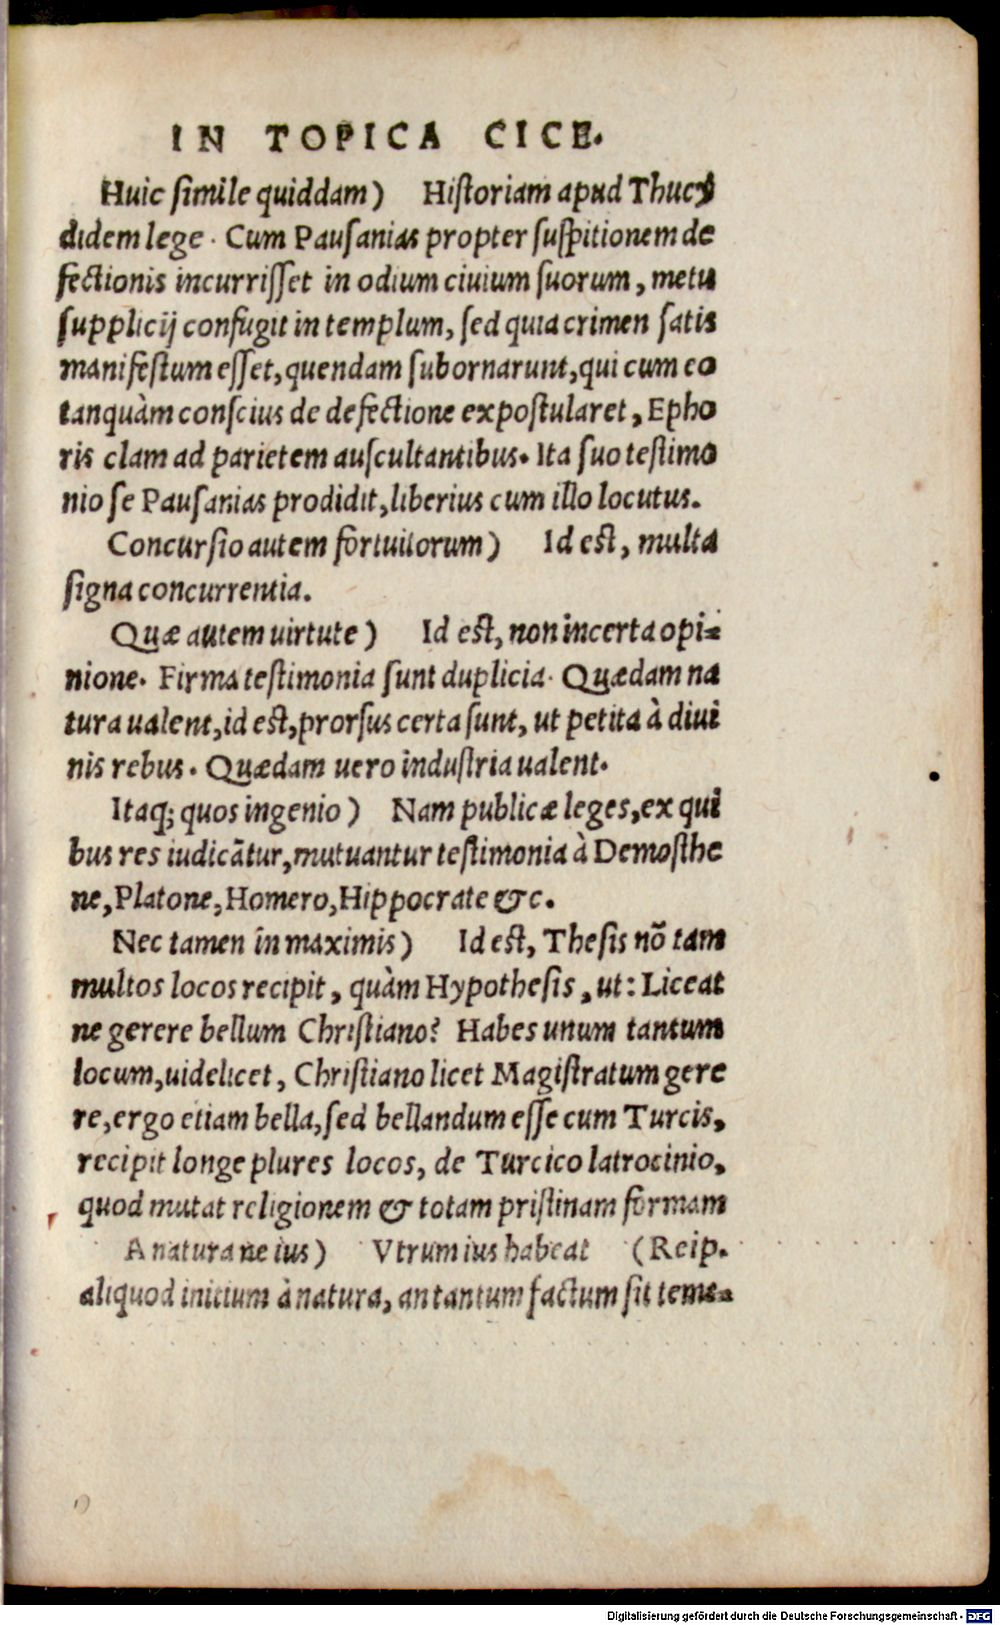 IN TOPICA CICE.
Huic simile quiddam) Historiam apud Thucy
didem lege. Cum Pausanias propter suspitionem de
fectionis incurrisset in odium ciuium suorum, metu
supplicij confugit in templum, sed quia crimen satis
manifestum esset, quendam subornarunt, qui cum eo
tanquàm conscius de defectione expostularet, Epho
ris clam ad parietem auscultantibus. Ita suo testimo
nio se Pausanias prodidit, liberius cum illo locutus.
Concursio autem fortuitorum) Id est, multa
signa concurrentia.
Quæ autem uirtute) Id est, non incerta opi=
nione. Firma testimonia sunt duplicia. Quædam na
tura ualent, id est, prorsus certa sunt, ut petita à diui
nis rebus. Quædam uero industria ualent.
Itaq; quos ingenio) Nam publicæ leges, ex qui
bus res iudicãtur, mutuantur testimonia à Demosthe
ne, Platone, Homero, Hippocrate &c.
Nec tamen in maximis) Id est, Thesis nõ tam
multos locos recipit, quàm Hypothesis, ut: Liceat
ne gerere bellum Christiano? Habes unum tantum
locum, uidelicet, Christiano licet Magistratum gere
re, ergo etiam bella, sed bellandum esse cum Turcis,
recipit longe plures locos, de Turcico latrocinio,
quod mutat religionem & totam pristinam formam
A natura ne ius) Vtrum ius habeat (Reip.
aliquod initium à natura, an tantum factum sit teme=
Digitalisierung gefördert durch die Deutsche Forschungsgemeinschaft - DFG